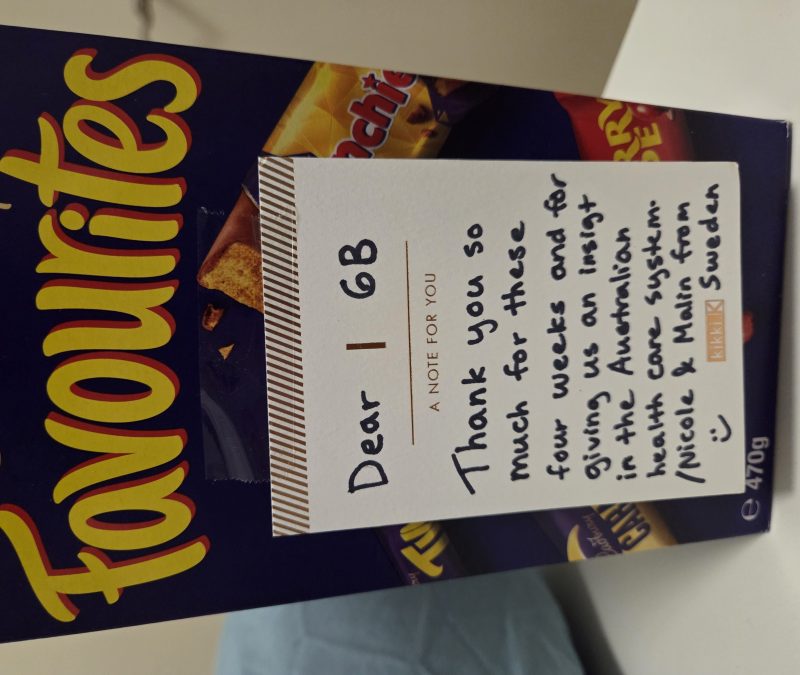 Favourites
nchie
RRY
PE
Dear 6B
A NOTE FOR YOU
Thank you so
much for these
four weeks and for
giving us an insigt
in the Australian
health care system.
/Nicole & Malin from
:) kikki.K Sweden
Cadbury
CAR
℮ 470g